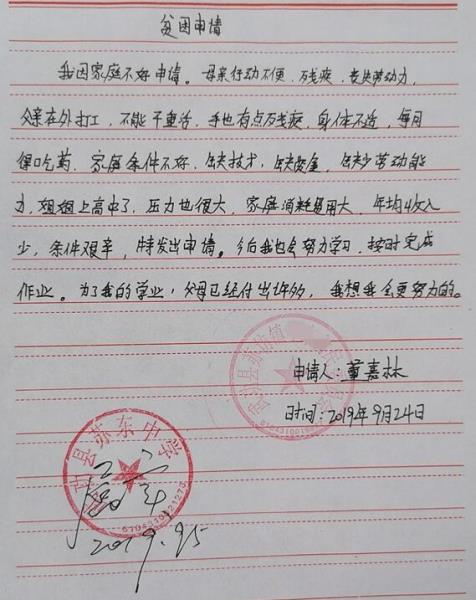 贫困申请
我因家庭不好申请。母亲行动不便,残疾,丧失劳动力,
父亲在外打工,不能干重活,手也有点残疾,身体不适,每月
得吃药,家庭条件不好,缺技术,缺资金,缺少劳动能
力,姐姐上高中了,压力也很大,家庭消耗费用大,年均收入
少,条件艰辛,特发出申请。今后我也会努力学习,按时完成
作业。为了我的学业,父母已经付出许多,我想我会更努力的。
申请人:董嘉林
时间:2019年9月24日
县苏东中学
2019.9.25